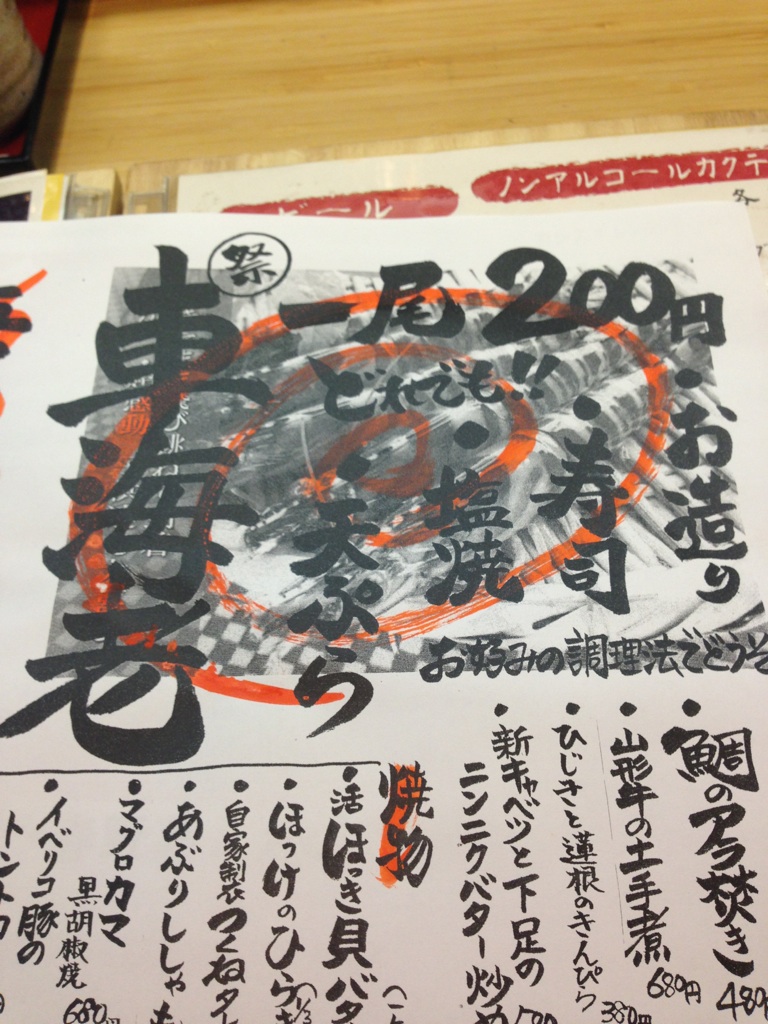 ビール
ノンアルコールカクテ
祭
車海老
一尾200円
どれでも!!
・お造り
・寿司
・塩焼
・天ぷら
お好みの調理法でどうぞ
・鯛のアラ焚き
480
・山形牛の土手煮
680円
・ひじきと蓮根のきんぴら
380円
・新キャベツと下足の
ニンニクバター炒め
焼物
・活ほっき貝バタ
・ほっけのひらき
・自家製つくねタレ
・あぶりししゃも
・マグロカマ
黒胡椒焼
680円
・イベリコ豚の